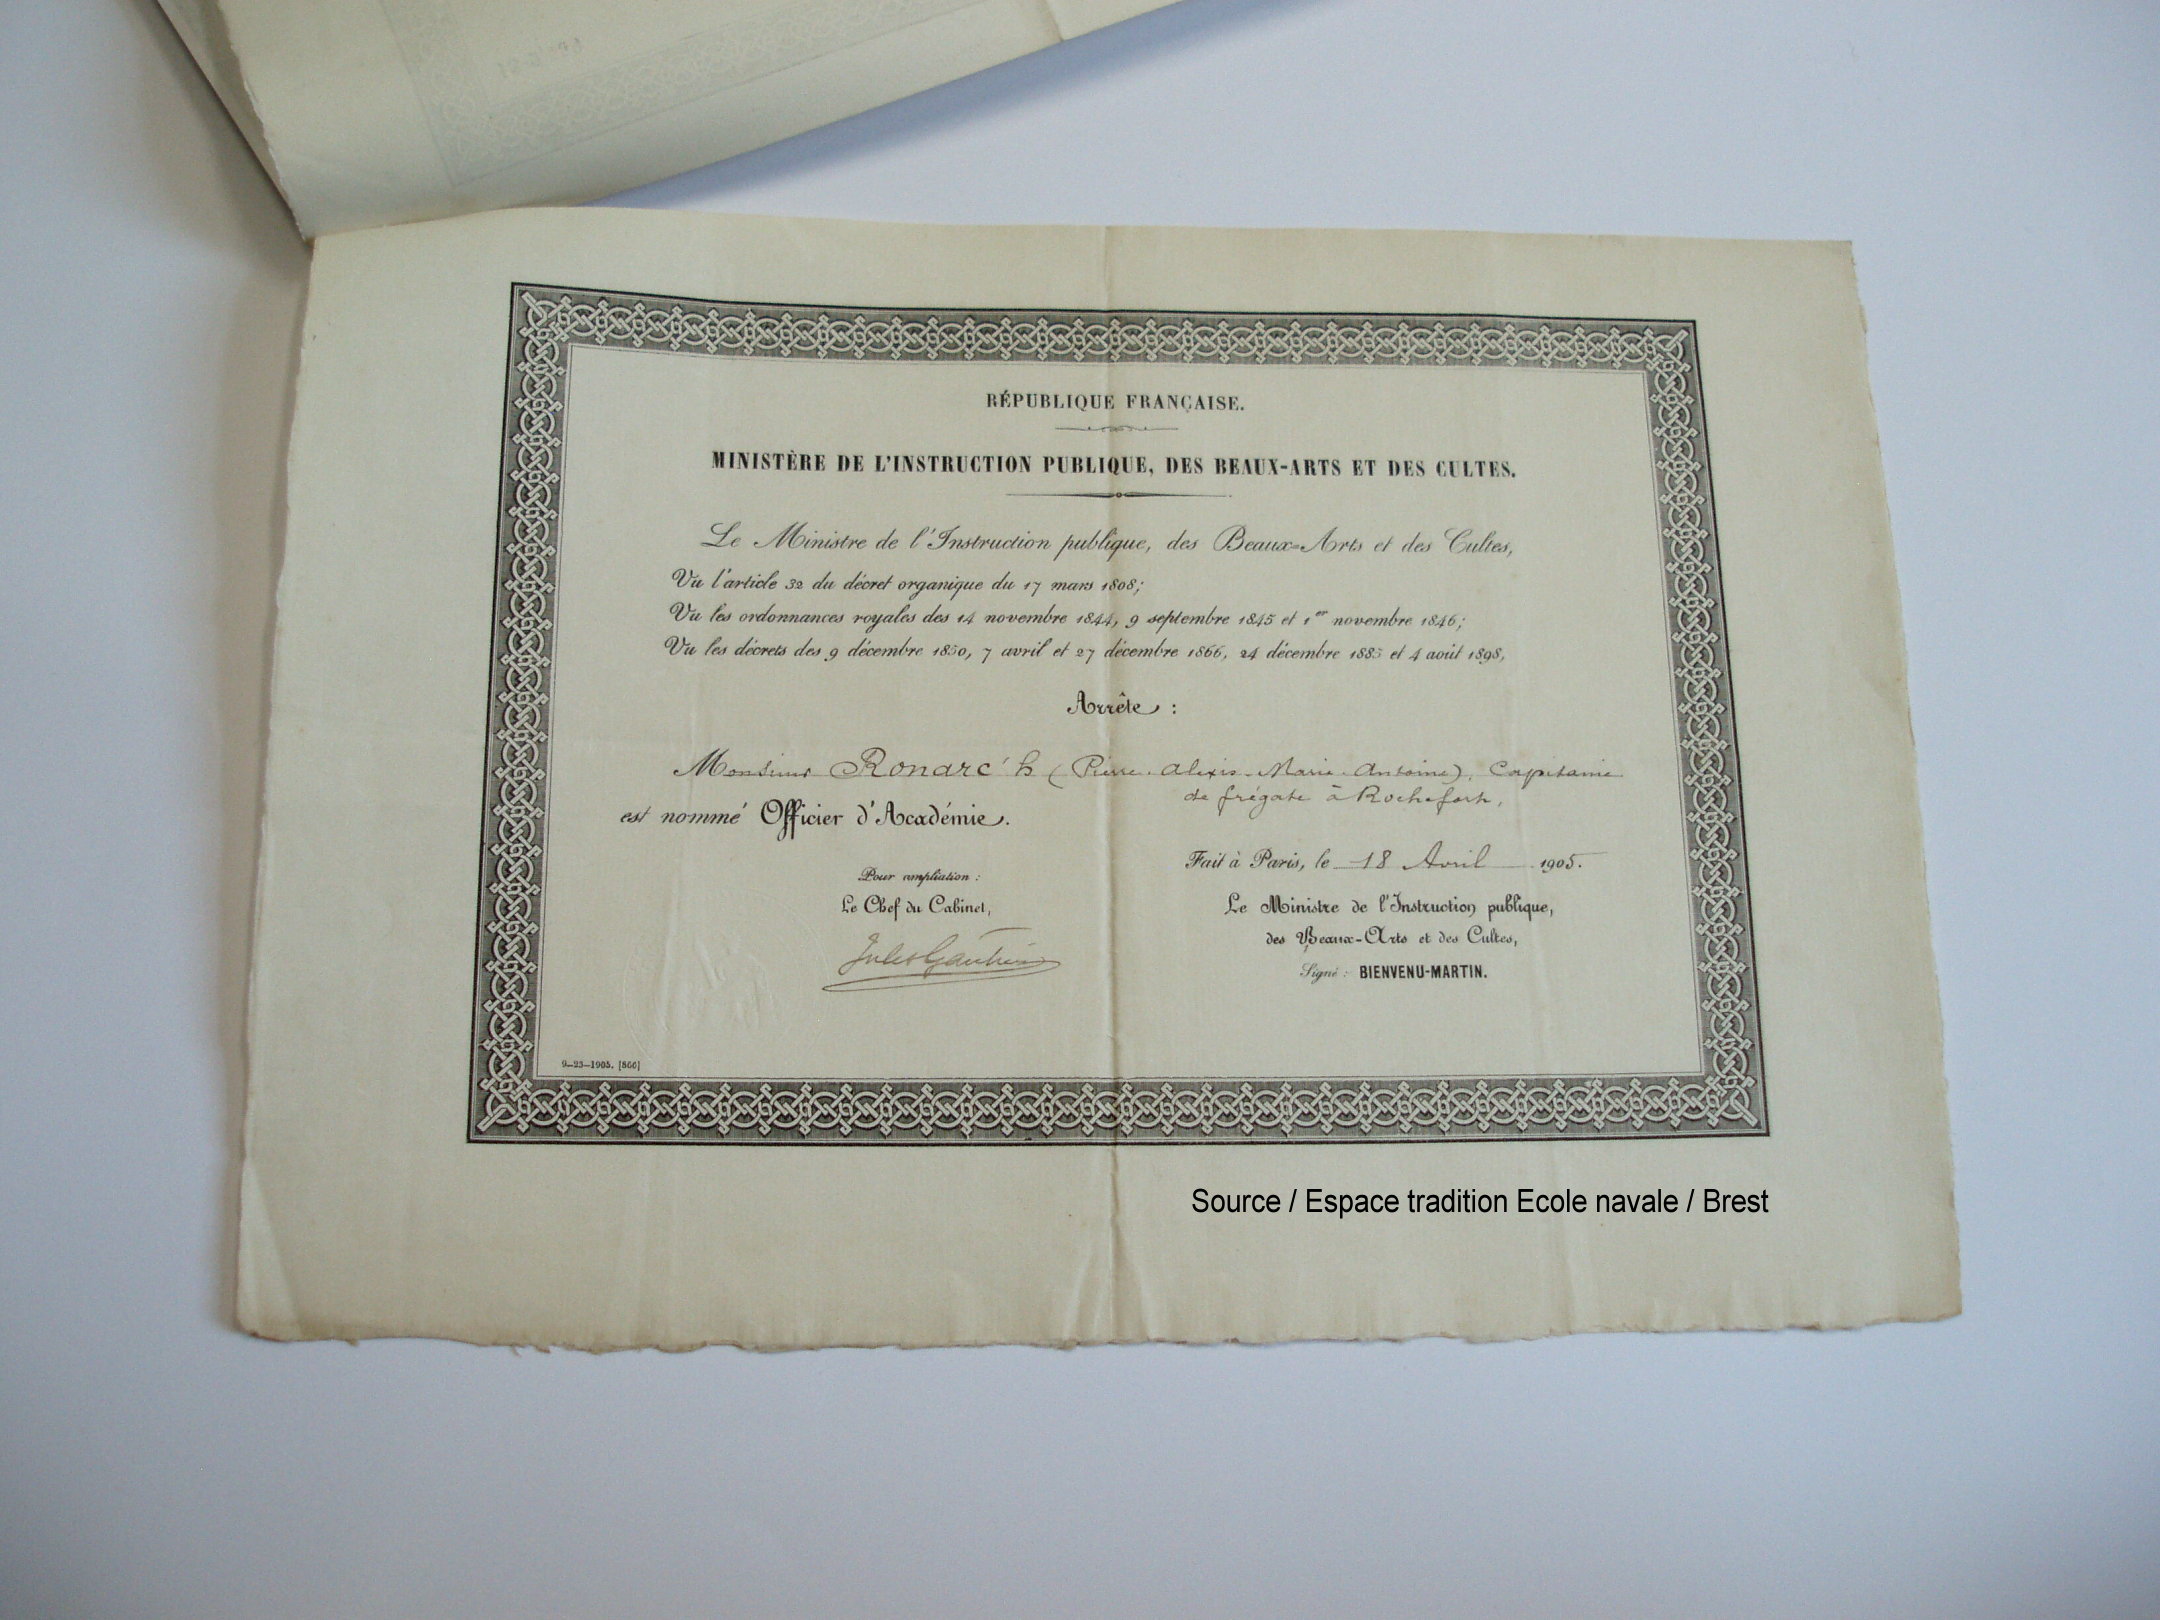 RÉPUBLIQUE FRANÇAISE.
MINISTÈRE DE L'INSTRUCTION PUBLIQUE, DES BEAUX-ARTS ET DES CULTES.
Le Ministre de l'Instruction publique, des Beaux-Arts et des Cultes,
Vu l'article 32 du décret organique du 17 mars 1808;
Vu les ordonnances royales des 14 novembre 1844, 9 septembre 1845 et 1er novembre 1846;
Vu les décrets des 9 décembre 1850, 7 avril et 27 décembre 1866, 24 décembre 1885 et 4 août 1898,
Arrête :
Monsieur Ronarc'h (Pierre-Alexis-Marie-Antoine), Capitaine
de frégate à Rochefort,
est nommé Officier d'Académie.
Fait à Paris, le 18 Avril 1905.
Pour ampliation :
Le Chef du Cabinet,
Jules Gautier
Le Ministre de l'Instruction publique,
des Beaux-Arts et des Cultes,
Signé : BIENVENU-MARTIN.
9-23-1905. [866]
Source / Espace tradition Ecole navale / Brest